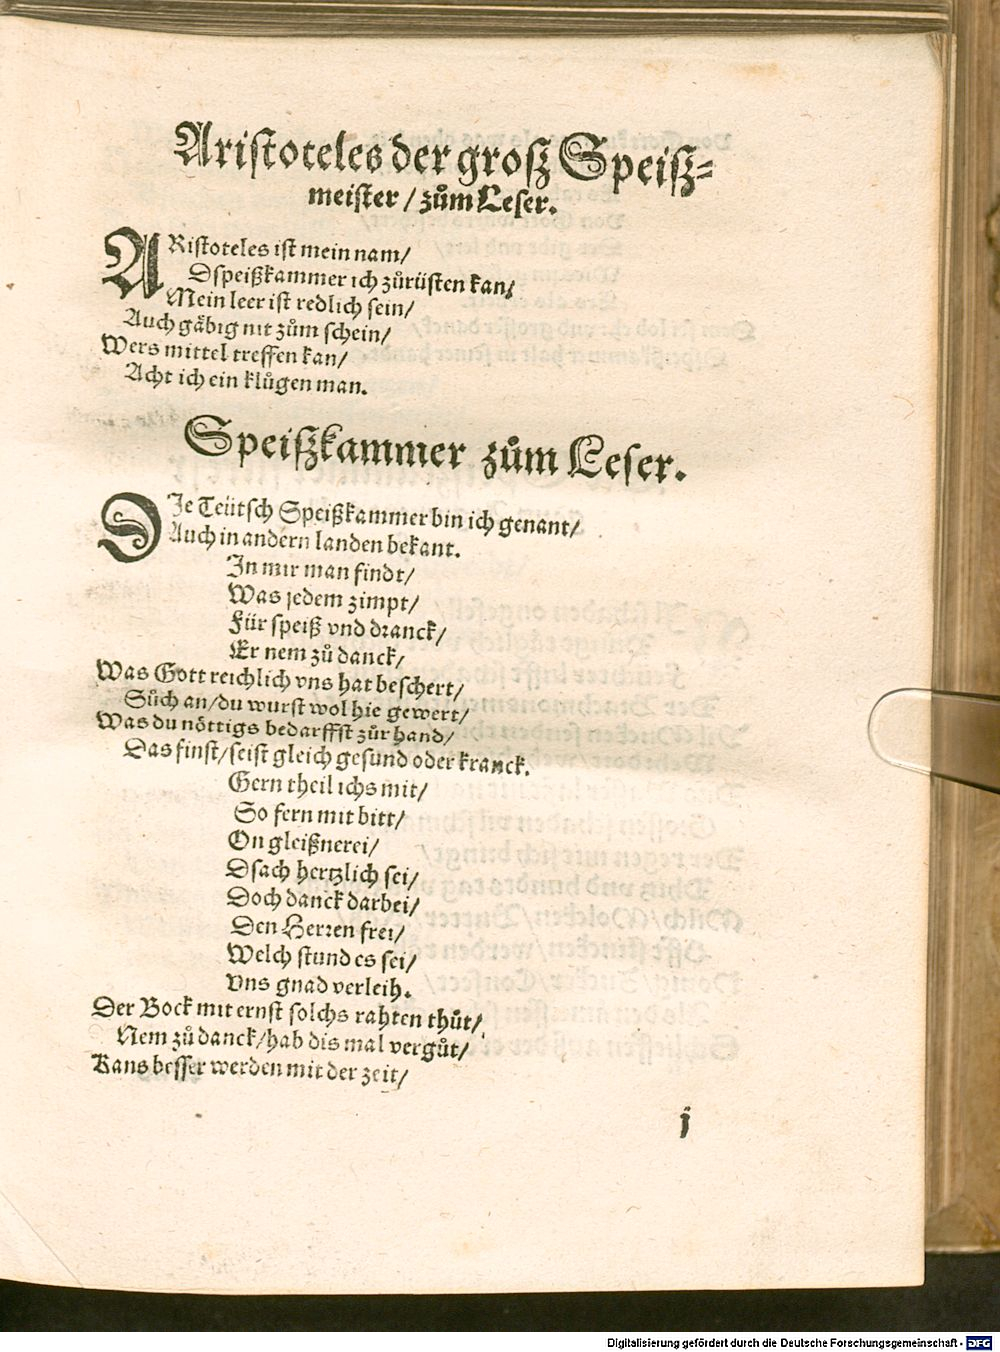 Aristoteles der grosz Speisz⸗
meister / zům Leser.
ARistoteles ist mein nam/
Dspeißkammer ich zůrüsten kan/
Mein leer ist redlich fein/
Auch gäbig nit zům schein/
Wers mittel treffen kan/
Acht ich ein klůgen man.
Speiszkammer zům Leser.
DJe Teütsch Speißkammer bin ich genant/
Auch in andern landen bekant.
In mir man findt/
Was jedem zimpt/
Für speiß vnd dranck/
Er nem zů danck/
Was Gott reichlich vns hat beschert/
Sůch an/du wurst wol hie gewert/
Was du nöttigs bedarffst zůr hand/
Das finst/seist gleich gesund oder kranck.
Gern theil ichs mit/
So fern mit bitt/
On gleißnerei/
Dsach hertzlich sei/
Doch danck darbei/
Den Herren frei/
Welch stund es sei/
Vns gnad verleih.
Der Bock mit ernst solchs rahten thůt/
Nem zů danck/hab dis mal vergůt/
Kans besser werden mit der zeit/
j
Digitalisierung gefördert durch die Deutsche Forschungsgemeinschaft - DFG